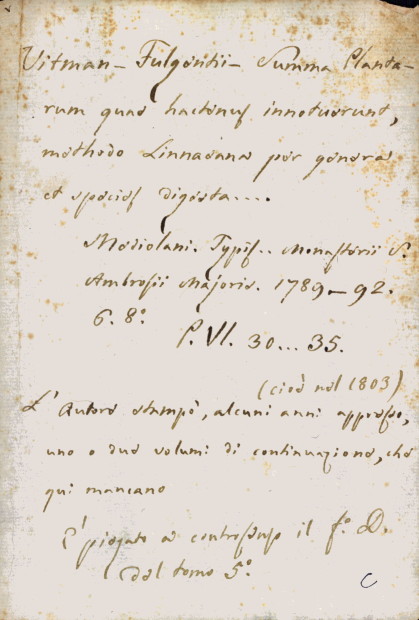 Vitman - Fulgentii - Summa Planta-
rum quae hactenus innotuerunt,
methodo Linnaeana per genera
et species digesta....
Mediolani. Typis.. Monasterii S.
Ambrosii Majoris. 1789-92.
6. 8.°
P. VI. 30... 35.
(cioè nel 1803)
L'Autore stampò, alcuni anni appresso,
uno o due volumi di continuazione, che
qui mancano
E' piegato a controsenso il f.° D.
del tomo 5.°
C